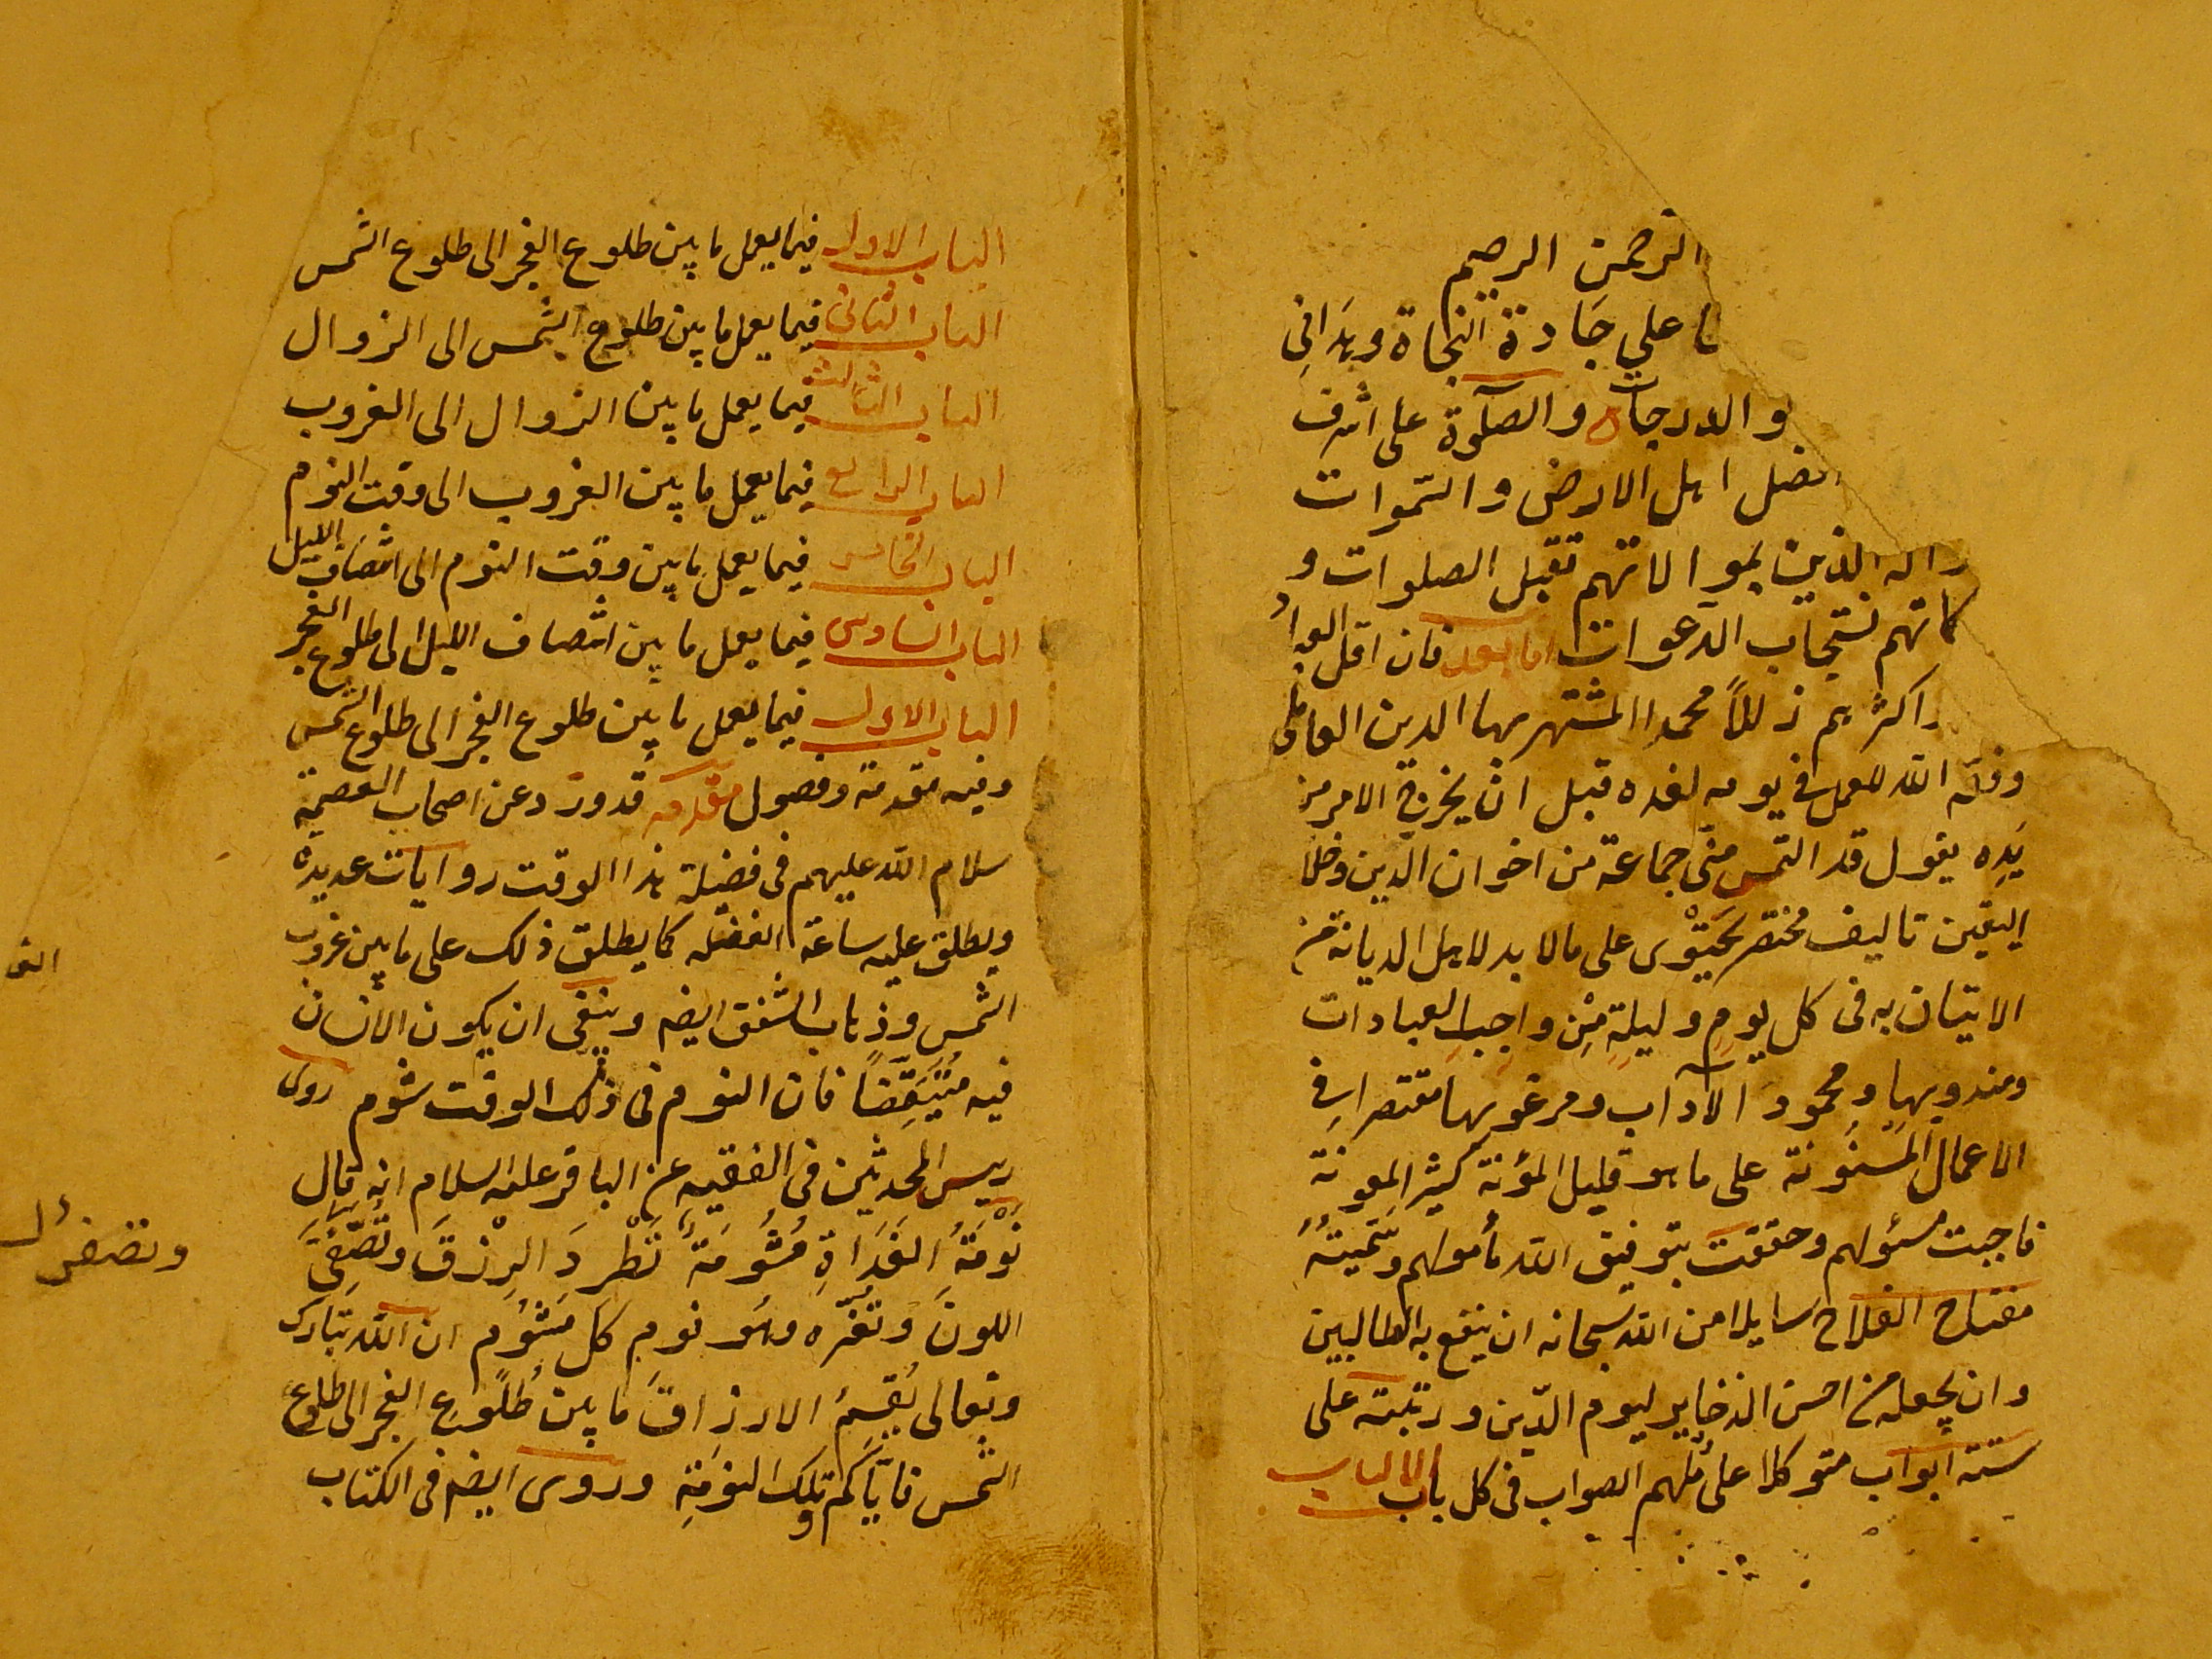 الرحمن الرحيم
نا علي جادة النجاة وهدانا
و الدرجات والصلوة على اشرف
افضل اهل الارض والسموات
واله الذين بموالاتهم تقبل الصلوات و
كاتهم تستجاب الدعوات اما بعد فان اقل العباد
واكثرهم زللا محمدا المشتهر ببهاء الدين العاملى
وفقه الله للعمل فى يومه لغده قبل ان يخرج الامر من
يده يقول قد التمس منى جماعة من اخوان الدين وخلا
اليقين تاليف مختصر يحتوى على مالا بد لاهل الديانة من
الاتيان به فى كل يوم وليلة من واجب العبادات
ومندوبها ومحمود الآداب ومرغوبها مقتصرا فى
الاعمال المسنونة على ما هو قليل المؤنة كثير المعونة
فاجبت مسئولهم وحققت بتوفيق الله مأمولهم وسميته
مفتاح الفلاح سايلا من الله سبحانه ان ينفع به الطالبين
وان يجعله من احسن الذخاير ليوم الدين ورتبته على
ستة ابواب متوكلا على ملهم الصواب فى كل باب الباب
الباب الاول فيما يعمل ما بين طلوع الفجر الى طلوع الشمس
الباب الثانى فيما يعمل ما بين طلوع الشمس الى الزوال
الباب الثالث فيما يعمل ما بين الزوال الى الغروب
الباب الرابع فيما يعمل ما بين الغروب الى وقت النوم
الباب الخامس فيما يعمل ما بين وقت النوم الى انتصاف الليل
الباب السادس فيما يعمل ما بين انتصاف الليل الى طلوع الفجر
الباب الاول فيما يعمل ما بين طلوع الفجر الى طلوع الشمس
وفيه مقدمة وفصول مقدمه قد ورد عن اصحاب العصمة
سلام الله عليهم فى فضيلة هذا الوقت روايات عديدة
ويطلق عليه ساعة الغفله كما يطلق ذلك على ما بين غروب
الشمس وذهاب الشفق ايضه وينبغى ان يكون الانسان
فيه متيقضا فان النوم فى ذلك الوقت شوم روى
رييس المحدثين فى الفقيه عن الباقر عليه السلام انه قال
نومة الغداة مشومة تطرد الرزق وتصفر
اللون وتغيره وهو نوم كل مشوم ان الله تبارك
وتعالى يقسم الارزاق ما بين طلوع الفجر الى طلوع
الشمس فاياكم وتلك النومة وروى ايضه فى الكتاب
وتصفر ل